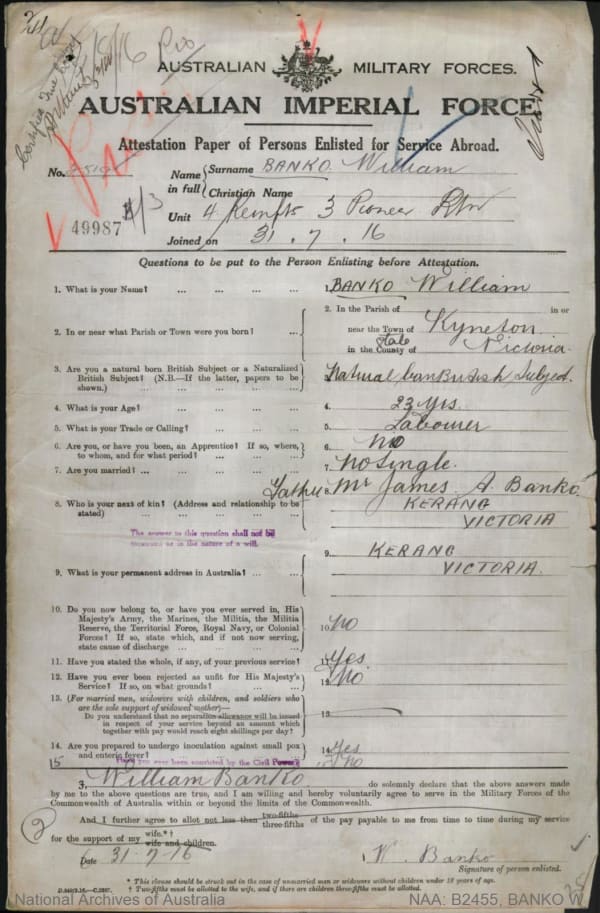 AUSTRALIAN MILITARY FORCES.
AUSTRALIAN IMPERIAL FORCE
Attestation Paper of Persons Enlisted for Service Abroad.
No.
Name in full
Surname BANKO William
Christian Name
Unit 4 Reinfts 3 Pioneer Btn
49987
Joined on 31 . 7 . 16
Questions to be put to the Person Enlisting before Attestation.
1. What is your Name? ... ... ... ... 1. BANKO William
2. In or near what Parish or Town were you born? ... 2. In the Parish of in or
near the Town of Kyneton
in the County of State Victoria
3. Are you a natural born British Subject or a Naturalized
British Subject? (N.B.—If the latter, papers to be
shown.) ... ... ... ... 3. Natural born British Subject.
4. What is your Age? ... ... ... ... 4. 23 yrs.
5. What is your Trade or Calling? ... ... ... 5. Labourer
6. Are you, or have you been, an Apprentice? If so, where,
to whom, and for what period? ... ... ... 6. No
7. Are you married? ... ... ... ... 7. No Single.
8. Who is your next of kin? (Address and relationship to be
stated) ... ... ... ... Father 8. Mr James A. Banko
KERANG
VICTORIA
The answer to this question shall not be
construed as in the nature of a will.
9. What is your permanent address in Australia? ... ... 9. KERANG
VICTORIA.
10. Do you now belong to, or have you ever served in, His
Majesty's Army, the Marines, the Militia, the Militia
Reserve, the Territorial Force, Royal Navy, or Colonial
Forces? If so, state which, and if not now serving,
state cause of discharge ... ... ... 10. No
11. Have you stated the whole, if any, of your previous service? 11. Yes.
12. Have you ever been rejected as unfit for His Majesty's
Service? If so, on what grounds? ... ... 12. No
13. (For married men, widowers with children, and soldiers who
are the sole support of widowed mother)—
Do you understand that no separation allowance will be issued
in respect of your service beyond an amount which
together with pay would reach eight shillings per day? 13.
14. Are you prepared to undergo inoculation against small pox
and enteric fever? ... ... ... ... 14. Yes
15 Have you ever been convicted by the Civil Power? 15 No
I, William Banko do solemnly declare that the above answers made
by me to the above questions are true, and I am willing and hereby voluntarily agree to serve in the Military Forces of the
Commonwealth of Australia within or beyond the limits of the Commonwealth.
And I further agree to allot not less than two-fifths three-fifths of the pay payable to me from time to time during my service
for the support of my wife.*† wife and children.
2
Date 31-7-16
W. Banko
Signature of person enlisted.
* This clause should be struck out in the case of unmarried men or widowers without children under 18 years of age.
† Two-fifths must be allotted to the wife, and if there are children three-fifths must be allotted.
National Archives of Australia
NAA: B2455, BANKO W